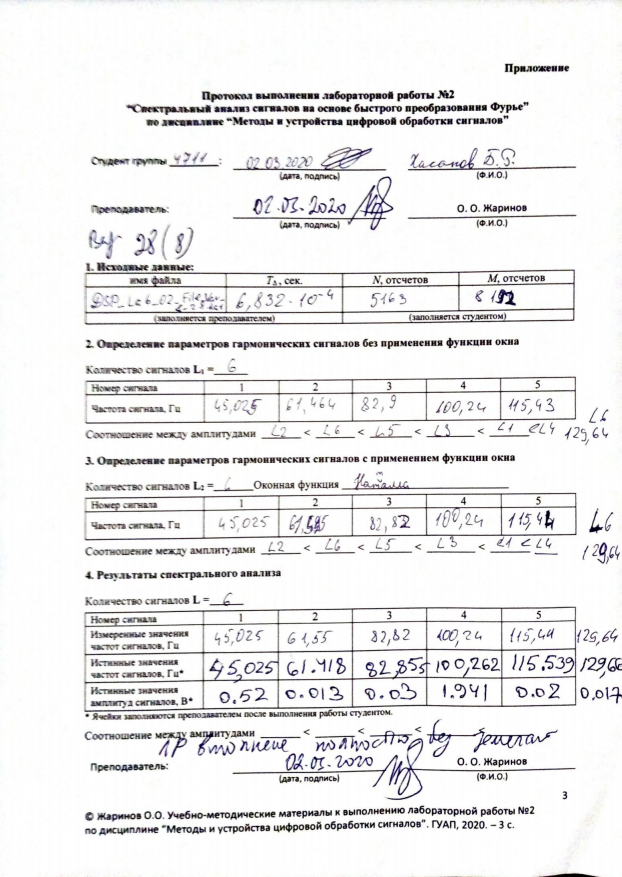 Приложение
Протокол выполнения лабораторной работы №2
“Спектральный анализ сигналов на основе быстрого преобразования Фурье”
по дисциплине “Методы и устройства цифровой обработки сигналов”
Студент группы 4711 : 02.03.2020 Хасанов Б.Р.
(дата, подпись) (Ф.И.О.)
Преподаватель: 02.03.2020 О. О. Жаринов
(дата, подпись) (Ф.И.О.)
28 (8)
1. Исходные данные:
имя файла TΔ, сек. N, отсчетов M, отсчетов
6,832·10⁻⁴ 5163 8192
(заполняется преподавателем) (заполняется студентом)
2. Определение параметров гармонических сигналов без применения функции окна
Количество сигналов L₁ = 6
Номер сигнала 1 2 3 4 5
Частота сигнала, Гц 45,025 61,464 82,9 100,24 115,43 L6
Соотношение между амплитудами L2 < L6 < L5 < L3 < L1 < L4 129,64
3. Определение параметров гармонических сигналов с применением функции окна
Количество сигналов L₂ = 6 Оконная функция Наталла
Номер сигнала 1 2 3 4 5
Частота сигнала, Гц 45,025 82,82 100,24 115,44 L6
Соотношение между амплитудами L2 < L6 < L5 < L3 < L1 < L4 129,64
4. Результаты спектрального анализа
Количество сигналов L = 6
Номер сигнала 1 2 3 4 5
Измеренные значения
частот сигналов, Гц 45,025 61,55 82,82 100,24 115,44 129,64
Истинные значения
частот сигналов, Гц* 45,025 61.418 82.855 100,262 115.539 129,66
Истинные значения
амплитуд сигналов, В* 0.52 0.013 0.03 1.941 0.02 0,017
* Ячейки заполняются преподавателем после выполнения работы студентом.
Соотношение между амплитудами < < < <
ЛР выполнена полностью без
Преподаватель: 02.03.2020 О. О. Жаринов
(дата, подпись) (Ф.И.О.)
3
© Жаринов О.О. Учебно-методические материалы к выполнению лабораторной работы №2
по дисциплине “Методы и устройства цифровой обработки сигналов”. ГУАП, 2020. – 3 с.